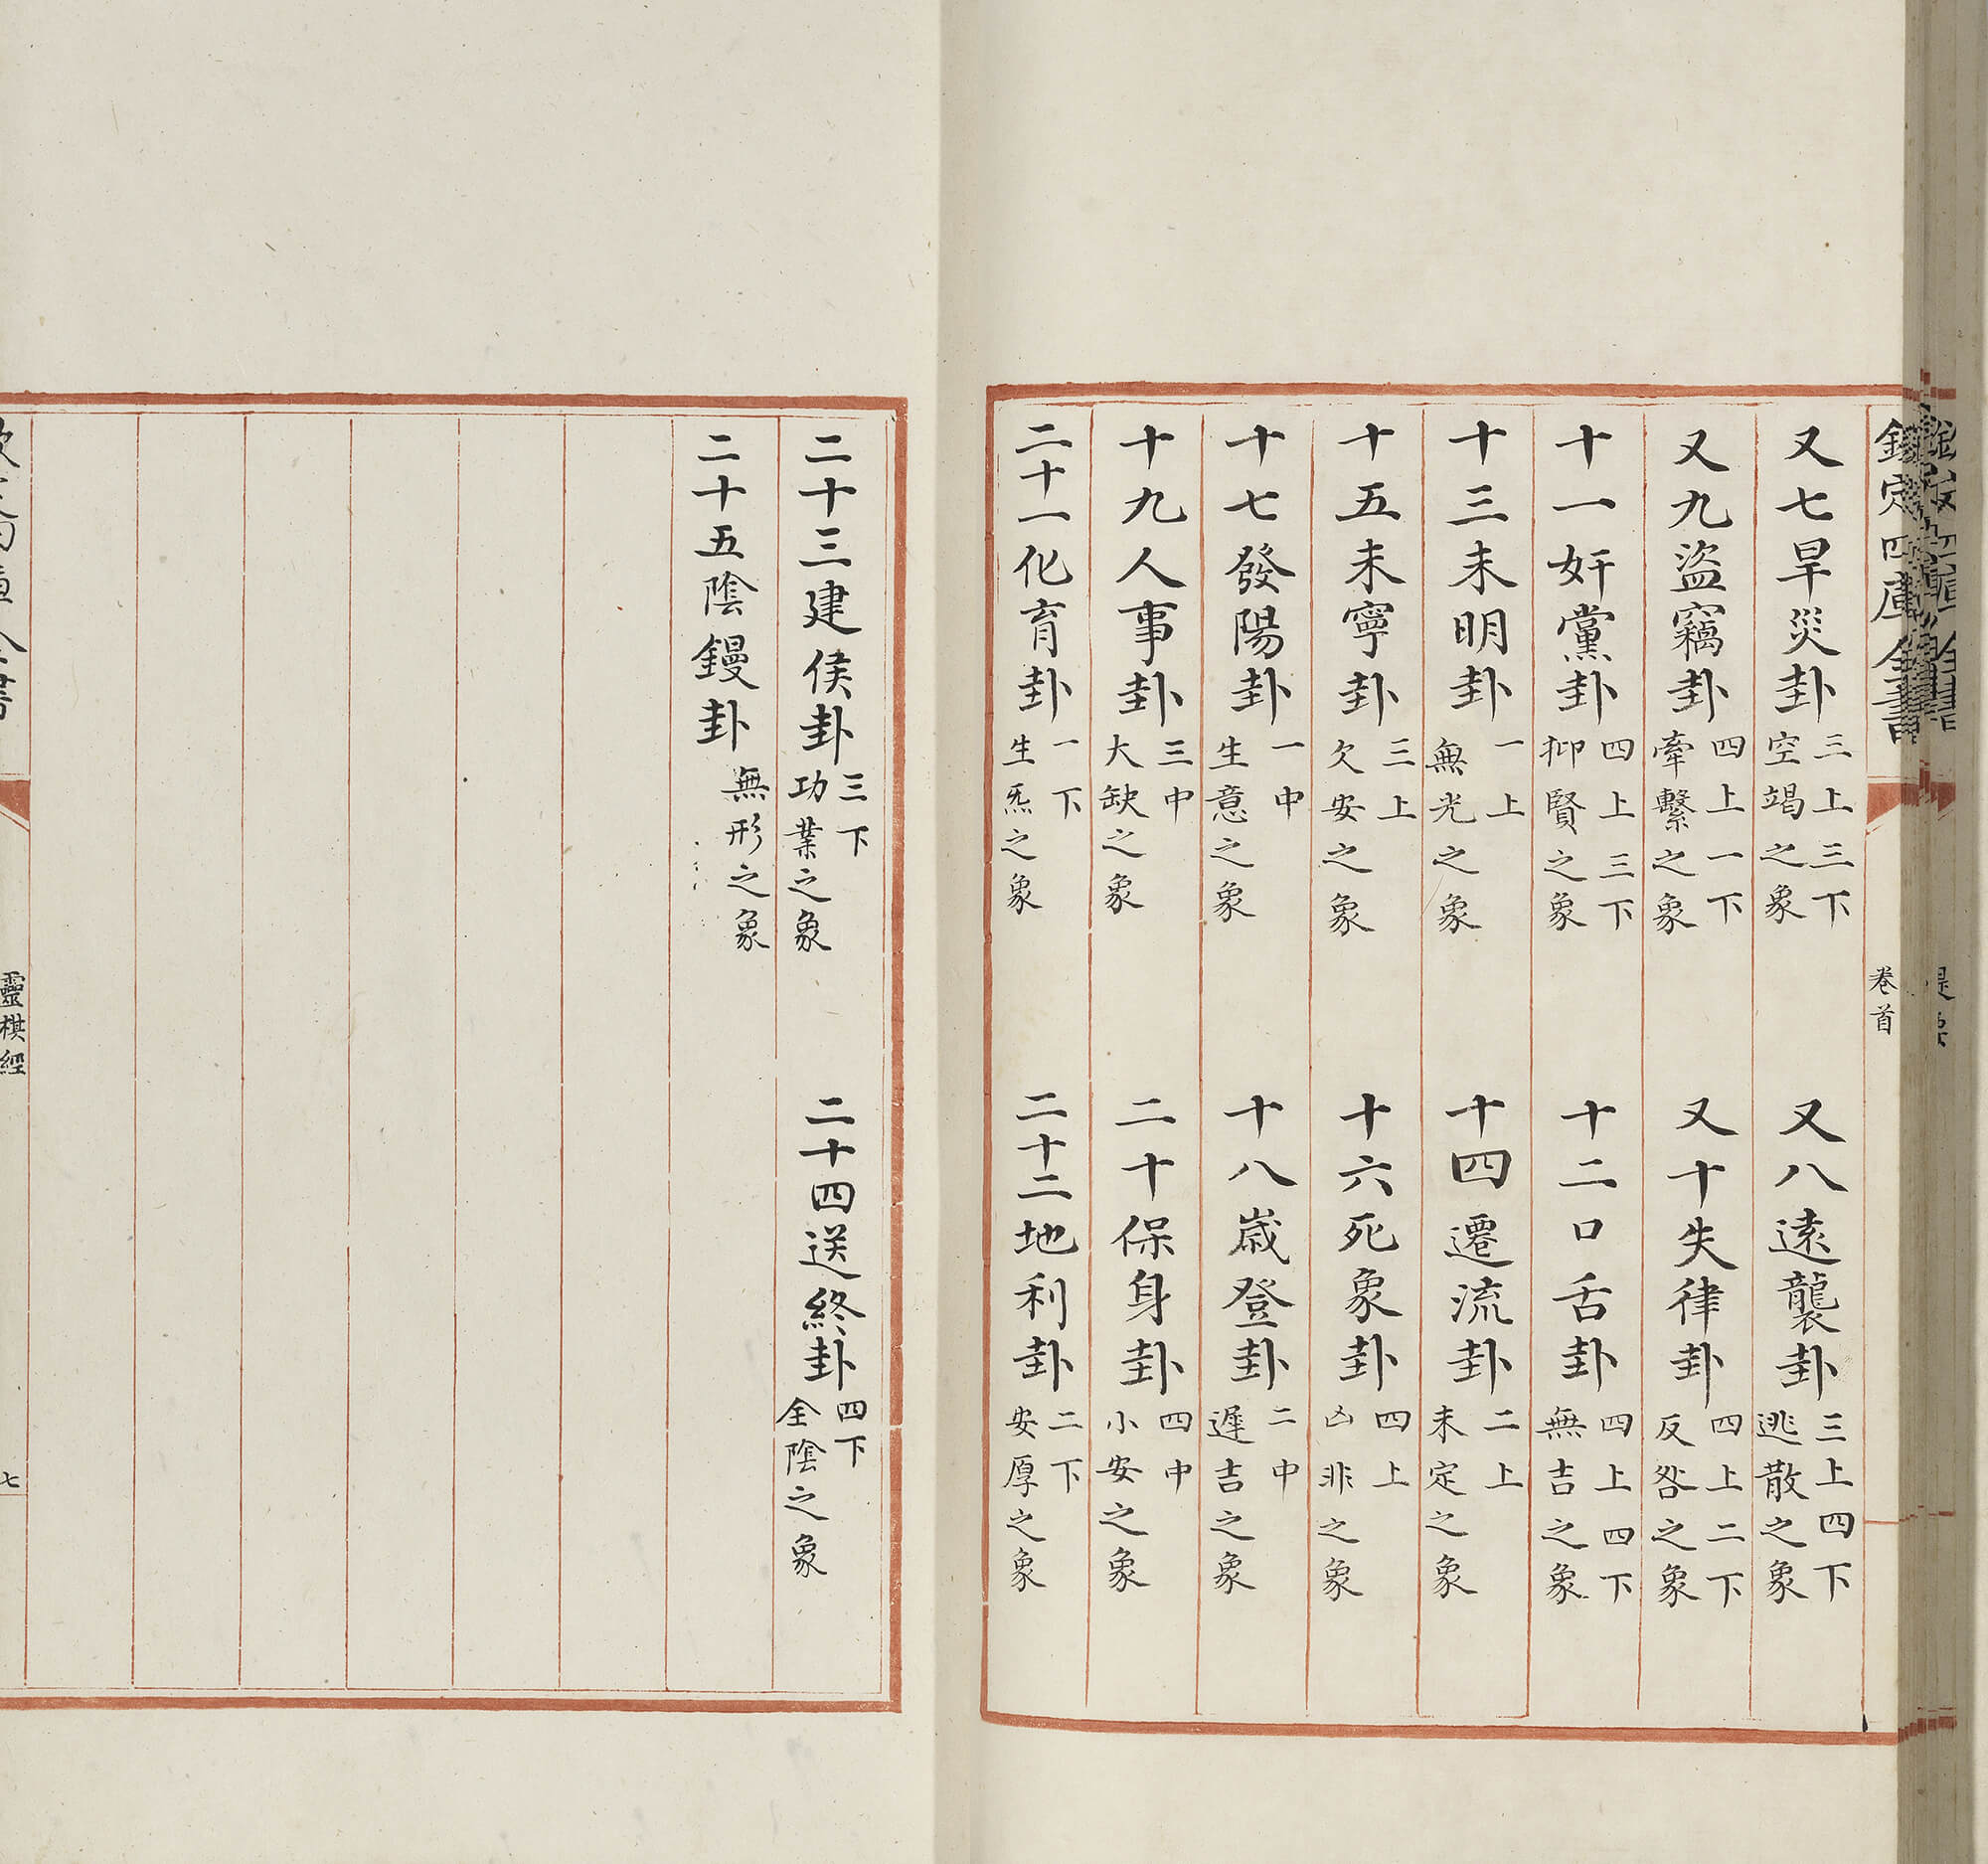 欽定四庫全書
卷首
又七旱災卦 三上三下 空竭之象 又八逺襲卦 三上四下 逃散之象
又九盜竊卦 四上一下 牽繫之象 又十失律卦 四上二下 反咎之象
十一奸黨卦 四上三下 抑賢之象 十二口舌卦 四上四下 無吉之象
十三未明卦 一上 無光之象 十四遷流卦 二上 未定之象
十五未寧卦 三上 欠安之象 十六死象卦 四上 凶非之象
十七發陽卦 一中 生意之象 十八嵗登卦 二中 遲吉之象
十九人事卦 三中 大缺之象 二十保身卦 四中 小安之象
二十一化育卦 一下 生炁之象 二十二地利卦 二下 安厚之象
二十三建侯卦 三下 功業之象 二十四送終卦 四下 全陰之象
二十五陰鏝卦 無形之象
靈棋經
七